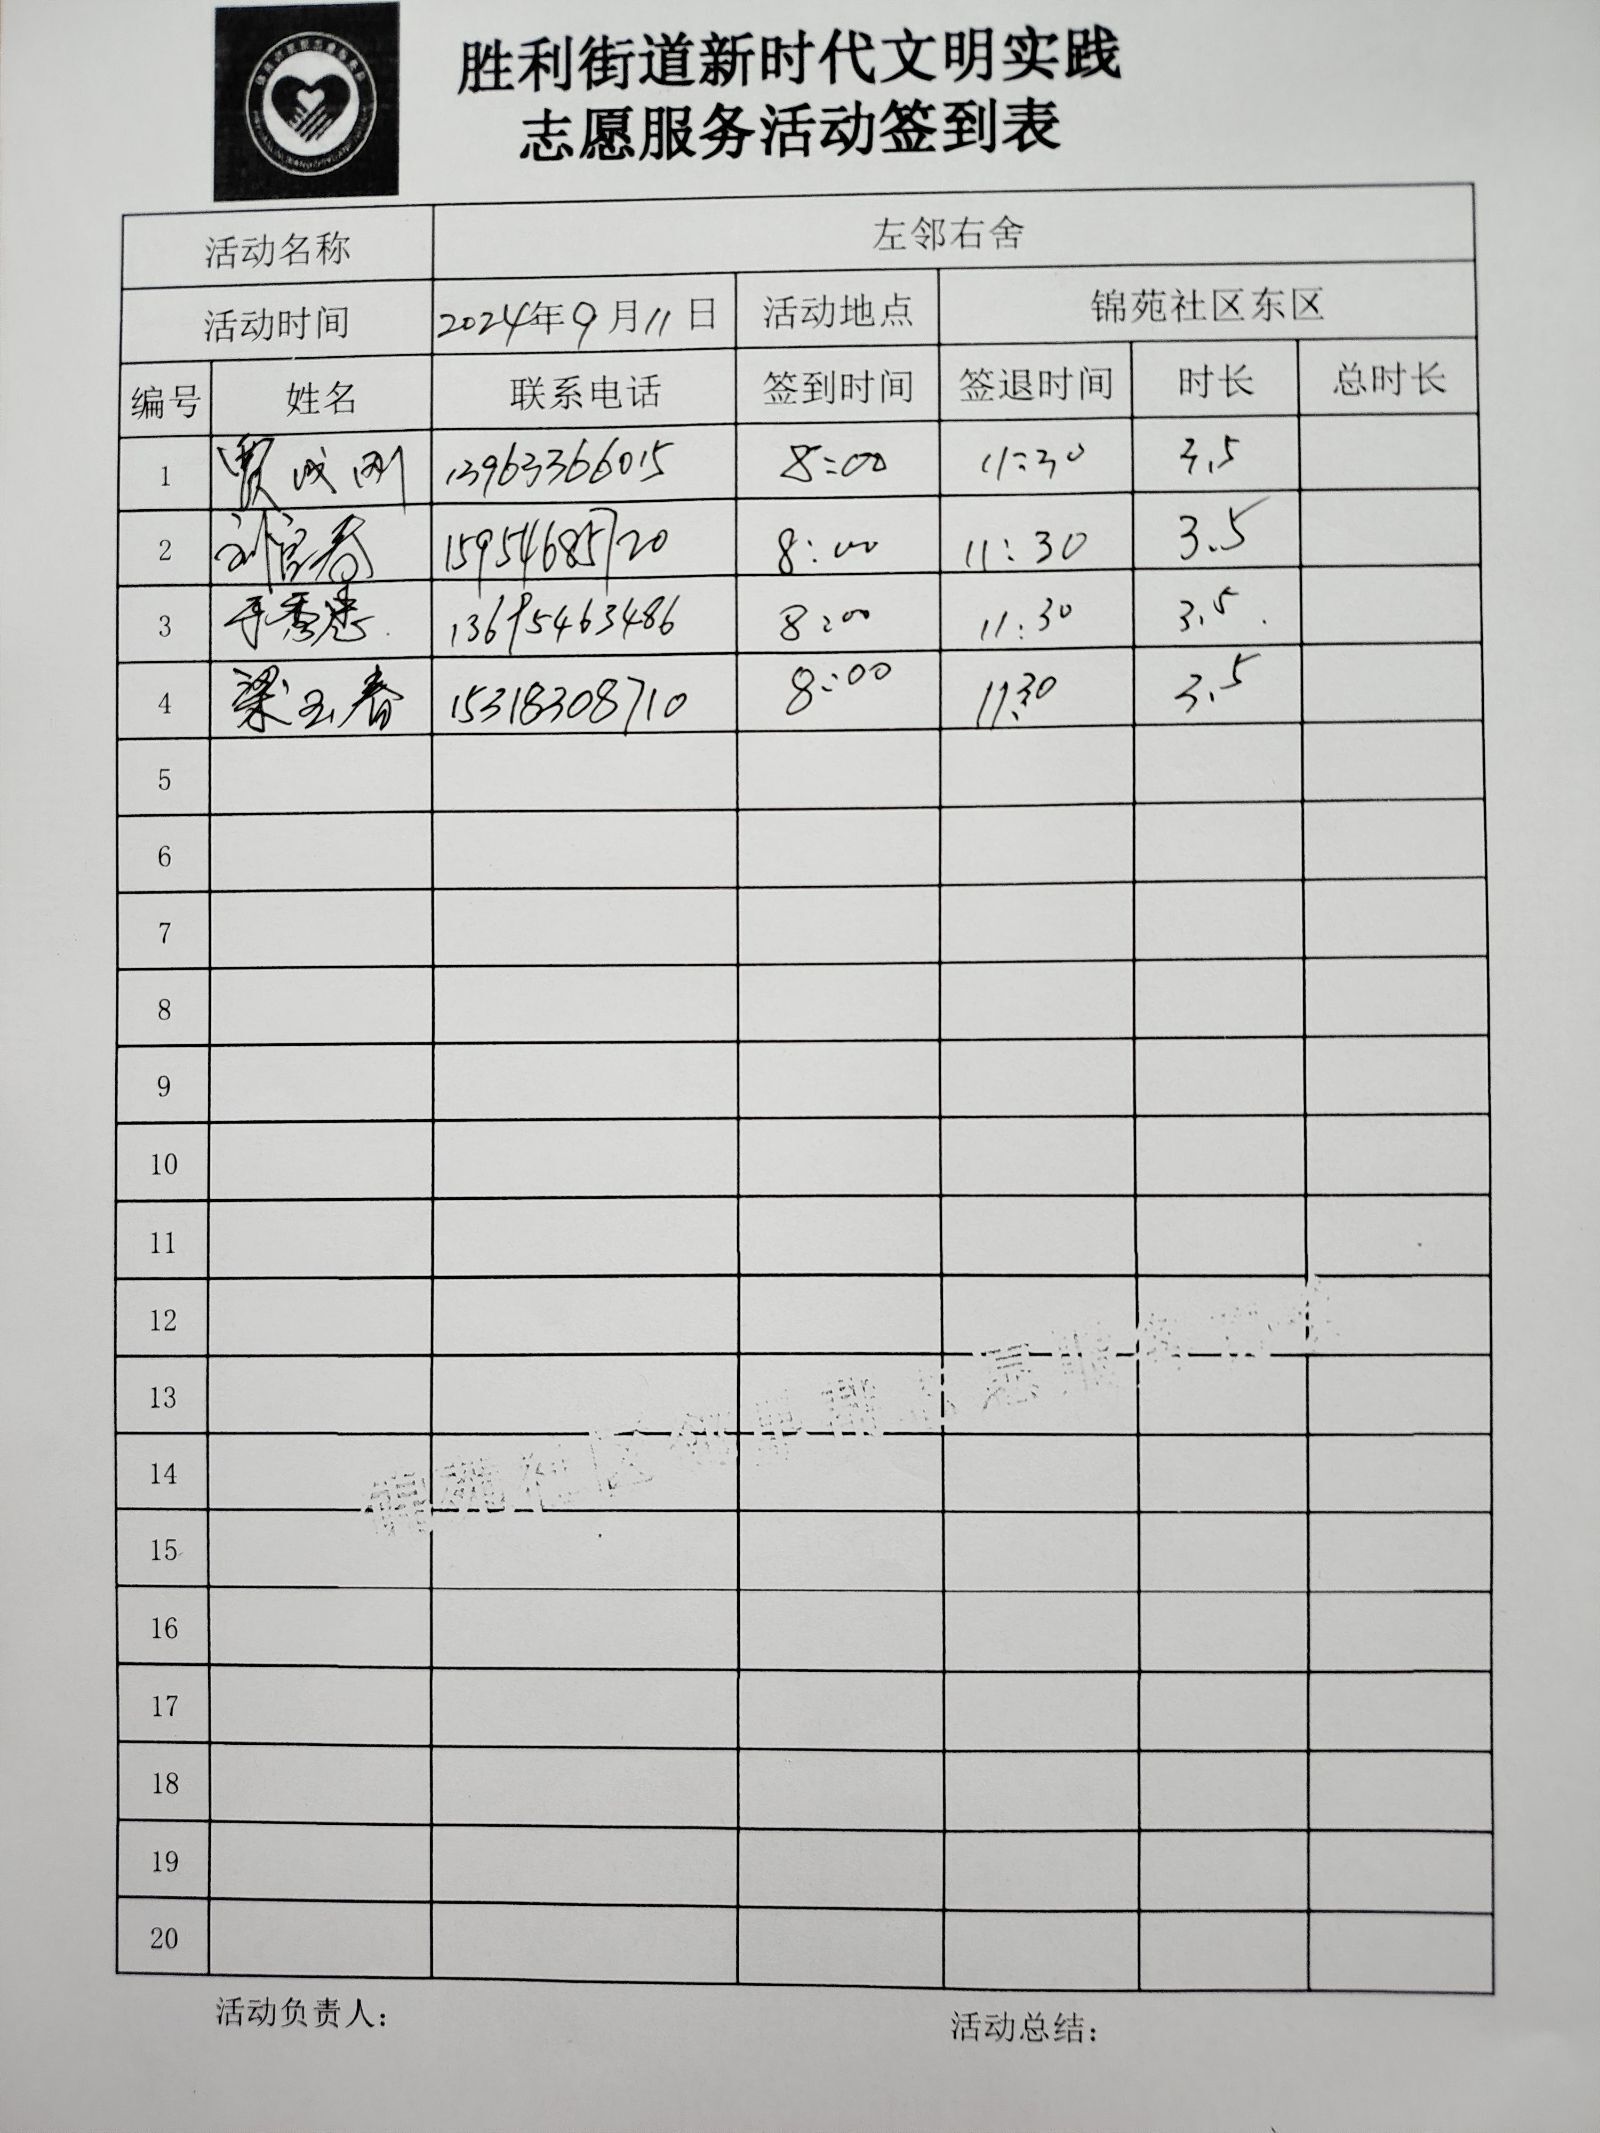 胜利街道新时代文明实践
志愿服务活动签到表
活动名称 左邻右舍
活动时间 2024年9月11日 活动地点 锦苑社区东区
编号 姓名 联系电话 签到时间 签退时间 时长 总时长
1 贾成刚 13963366015 8:00 11:30 3.5
2 刘官春 15954685720 8:00 11:30 3.5
3 于秀忠 13695463486 8:00 11:30 3.5
4 梁玉春 15318308710 8:00 11:30 3.5
5
6
7
8
9
10
11
12
13
14
15
16
17
18
19
20
锦苑社区邻里帮志愿服务
活动负责人: 活动总结: